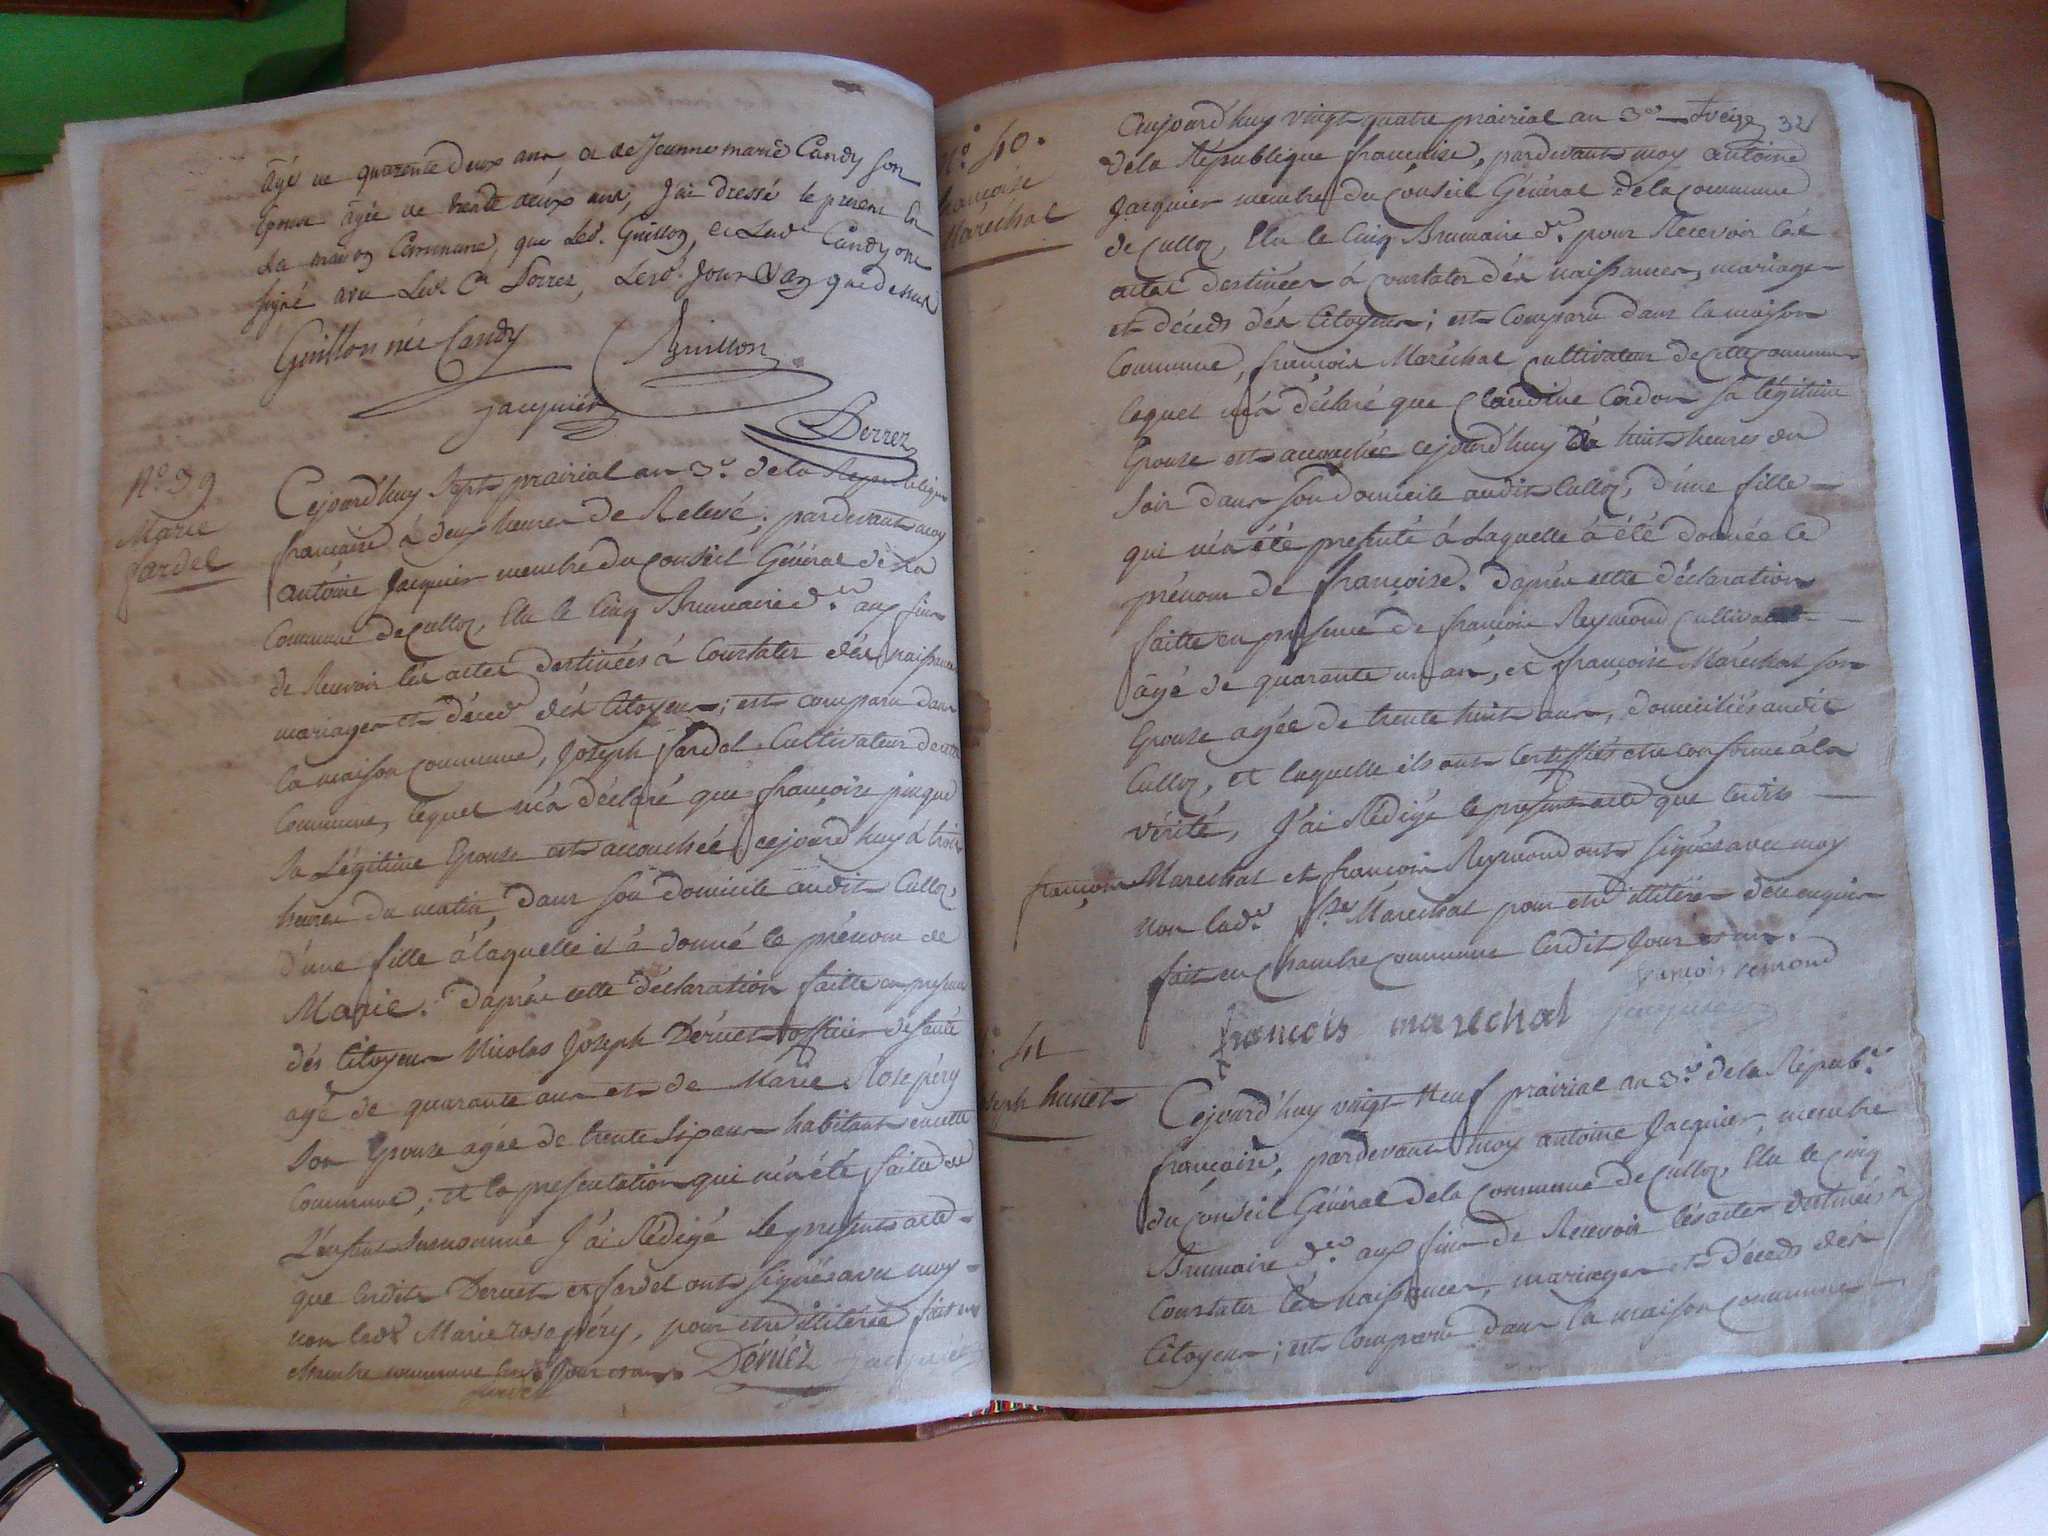 âgé de quarante deux ans, et de Jeanne marie Candy son
Epouse âgée de trente deux ans, J'ai dressé le present En
La maison Commune, que Led. Guillon, et Lad.e Candy ont
signé avec Led. Cn Dorrez, Lesd. Jour & an que dessus
Guillon née Candy
Guillon
jacquier
Derrez
N.o 39
Marie
fardel
Cejourd'huy sept prairial an 3.e de la Republique
française à deux heures de Relevé, pardevant moy
antoine Jacquier membre du Conseil Général de la
Commune de Culloz, Elu le Cinq Brumaire d.er aux fins
de Recevoir les actes destinées à Constater dés naissances
mariages et décéds dés Citoyens; est comparu dans
la maison commune, Joseph fardel Cultivateur de cette
Commune, lequel m'a déclaré que françoise pinque
sa Légitime Epouse est accouchée cejourd'huy à trois
heures du matin, dans son domicile audit Culloz,
d'une fille à laquelle il à donné le prénom de
Marie. D'après cette déclaration faitte en presence
dés Citoyens Nicolas Joseph Déruet officier de santé
agé de quarante ans et de Marie Rose péry
son Epouse agée de trente six ans habitants en cette
Commune; et la presentation qui m'a été faitte de
L'enfant surnommé J'ai Rédigé le present acte
que lesdits Deruet et fardel ont signés avec moy
non lade Marie rose péry, pour etre illitérée fait en
chambre commune lesd. Jour et an. Déruéz jacquier
fardel
32
N.o 40.
françoise
Maréchal
Aujourd'huy vingt quatre prairial an 3.e
de la République française, pardevant moy antoine
Jacquier membre du Conseil Général de la Commune
de Culloz, Elu le Cinq Brumaire d.er pour Recevoir lés
actes destinées à constater dés naissances, mariages
et décéds dés Citoyens; est Comparu dans la maison
Commune, françois Maréchal cultivateur de cette Commune
lequel m'a déclaré que Claudine Cordon sa légitime
Epouse est accouchée cejourd'huy à huit heures du
soir dans son domicile audit Culloz, d'une fille
qui m'a été presenté à Laquelle à été donnée le
prénom de françoise. D'après cette déclaration
faitte en presence de françois Reymond Cultivateur
âgé de quarante un an, et françoise Maréchal son
Epouse agée de trente huit ans, domiciliés audit
Culloz, et laquelle ils ont Certiffiés etre conforme à la
vérité, J'ai Rédigé le present acte que lesdits
françois Marechal et françois Reymond ont signés avec moy
non lad.e f.se Maréchal pour etre illitérée de ce enquise
fait en chambre commune lesdits Jour et an.
françois remond
françois marechal jacquier
N.o 41
Joseph hunet
Cejourd'huy vingt neuf prairial an 3.e de la Répub.e
française, pardevant moy antoine Jacquier, membre
du Conseil Général de la Commune de Culloz, Elu le Cinq
Brumaire d.er aux fins de Recevoir lés actes destinées à
Constater lés naissances, mariages et décéds dés
Citoyens; est Comparu dans la maison commune